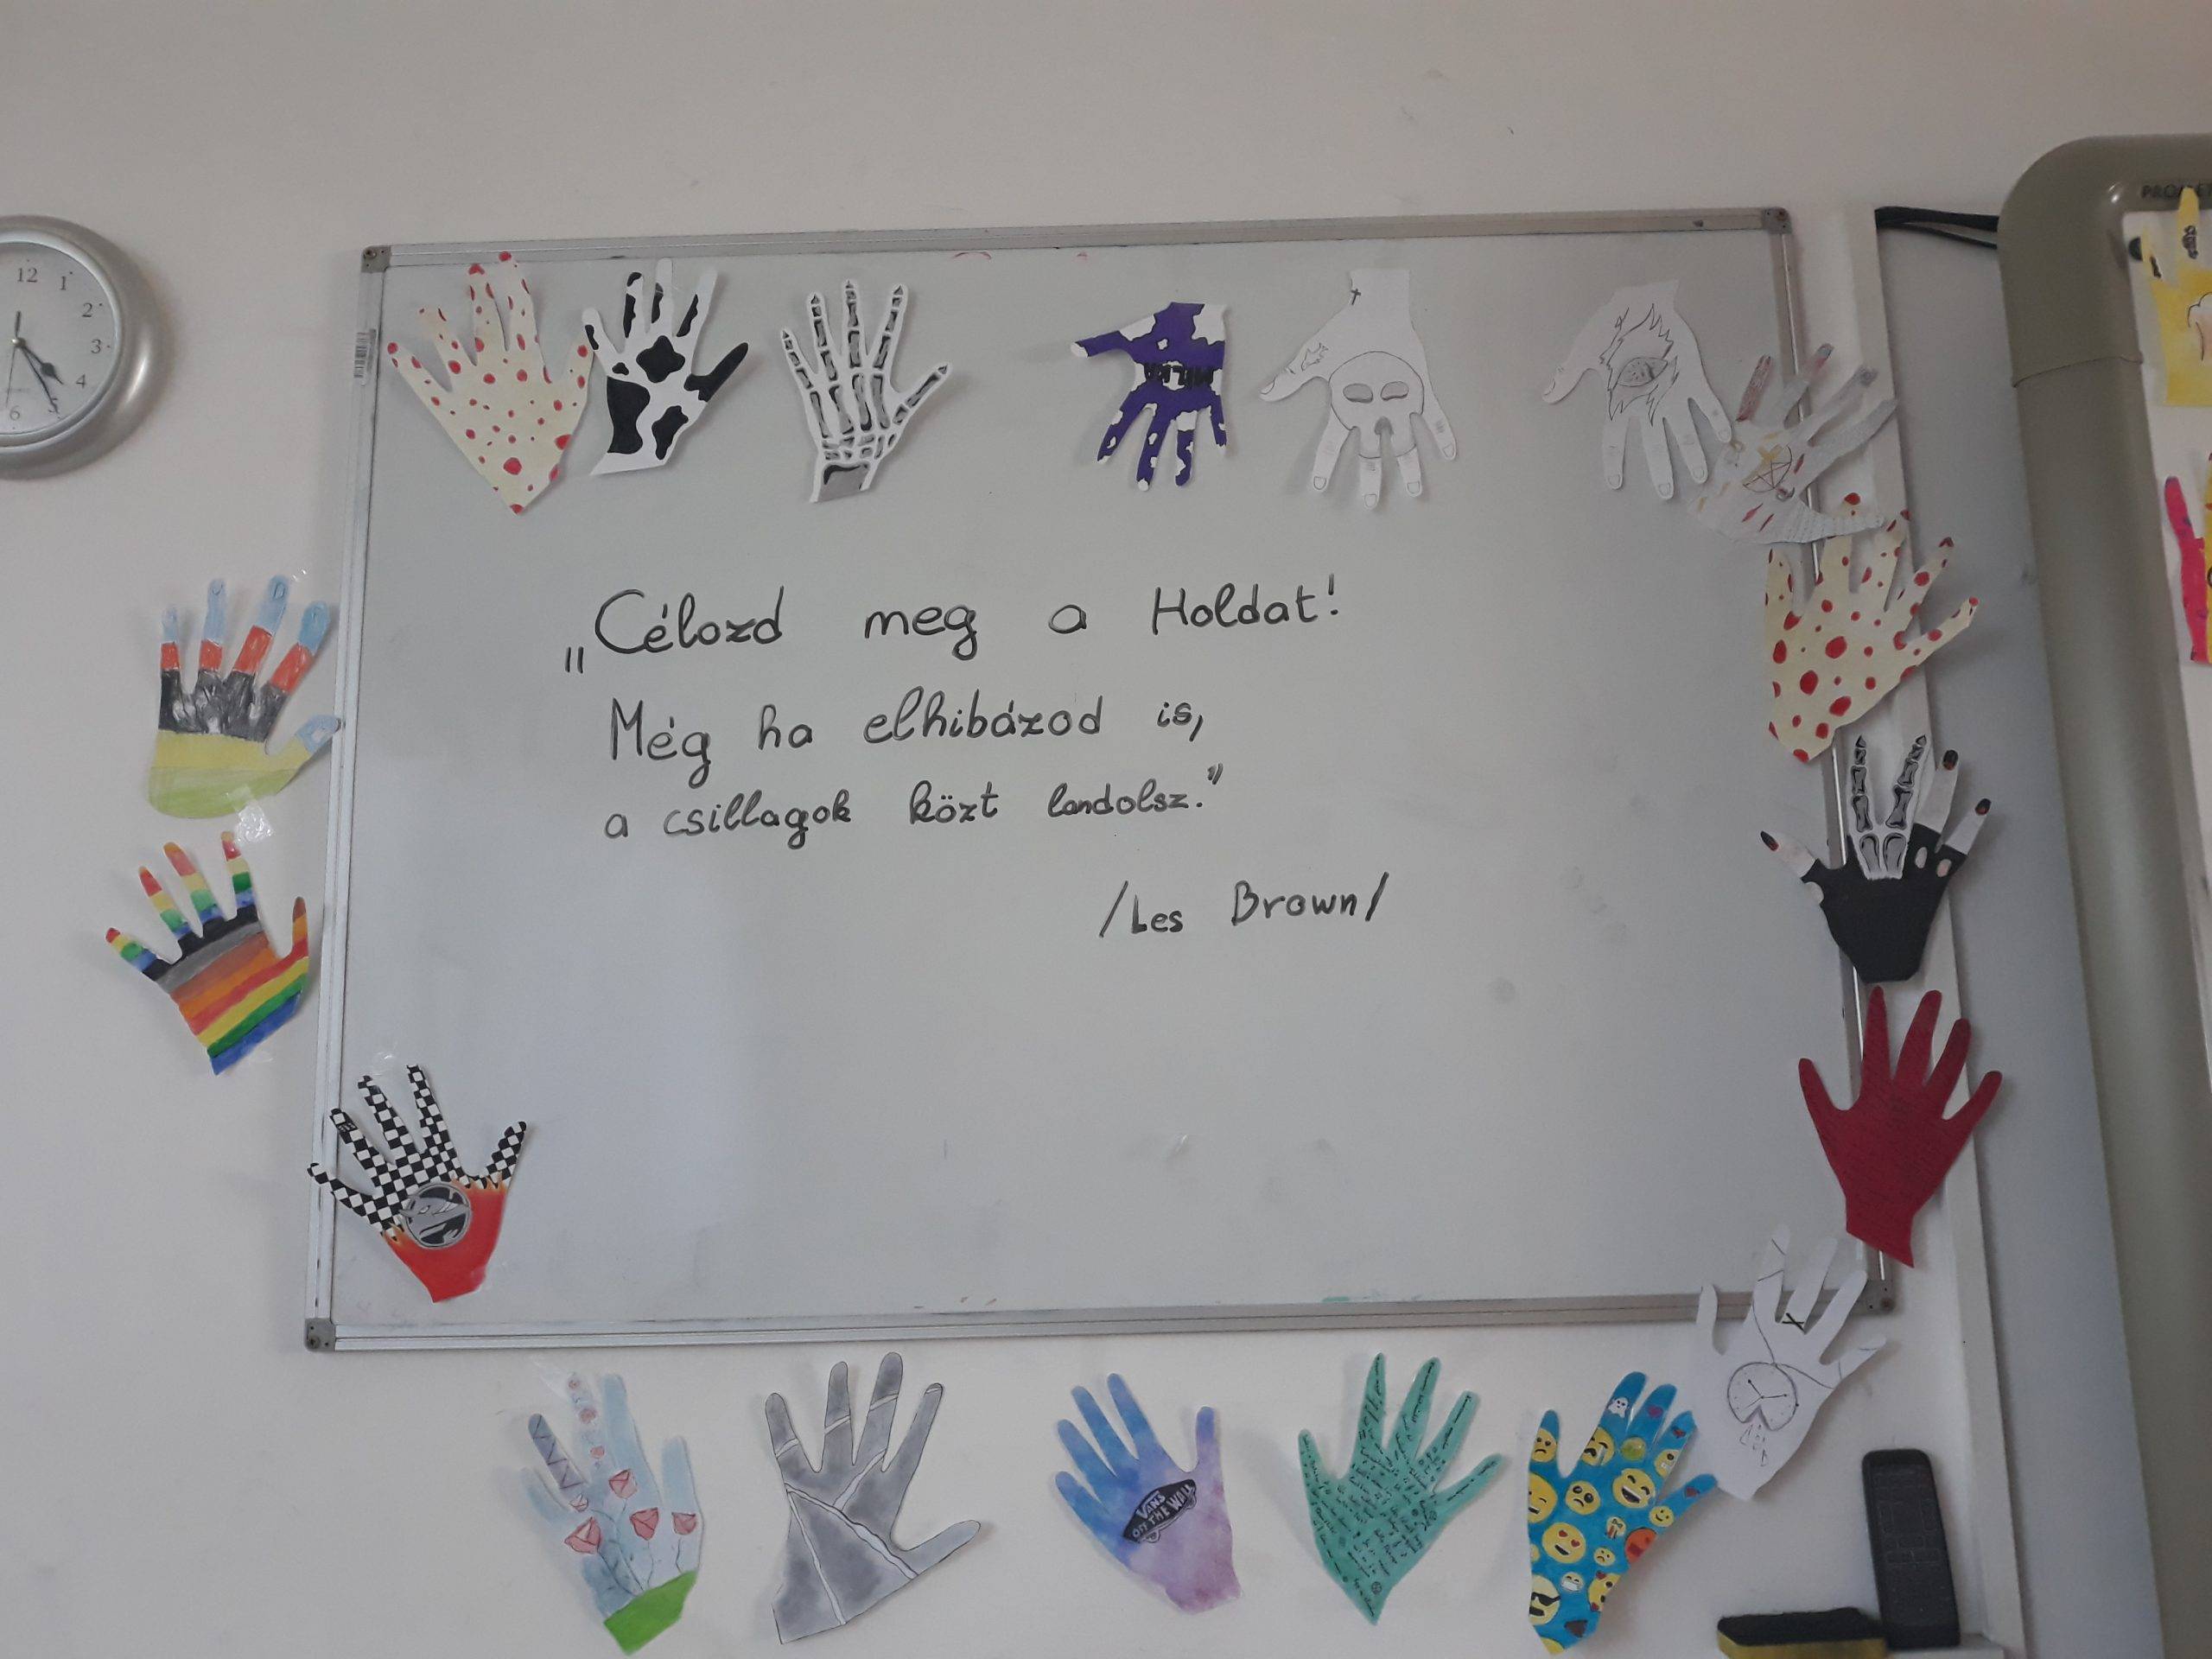 12
1
2
3
4
5
6
PROME
MILKA
„Célozd meg a Holdat!
Még ha elhibázod is,
a csillagok közt landolsz.”
/Les Brown/
VANS
OFF THE WALL